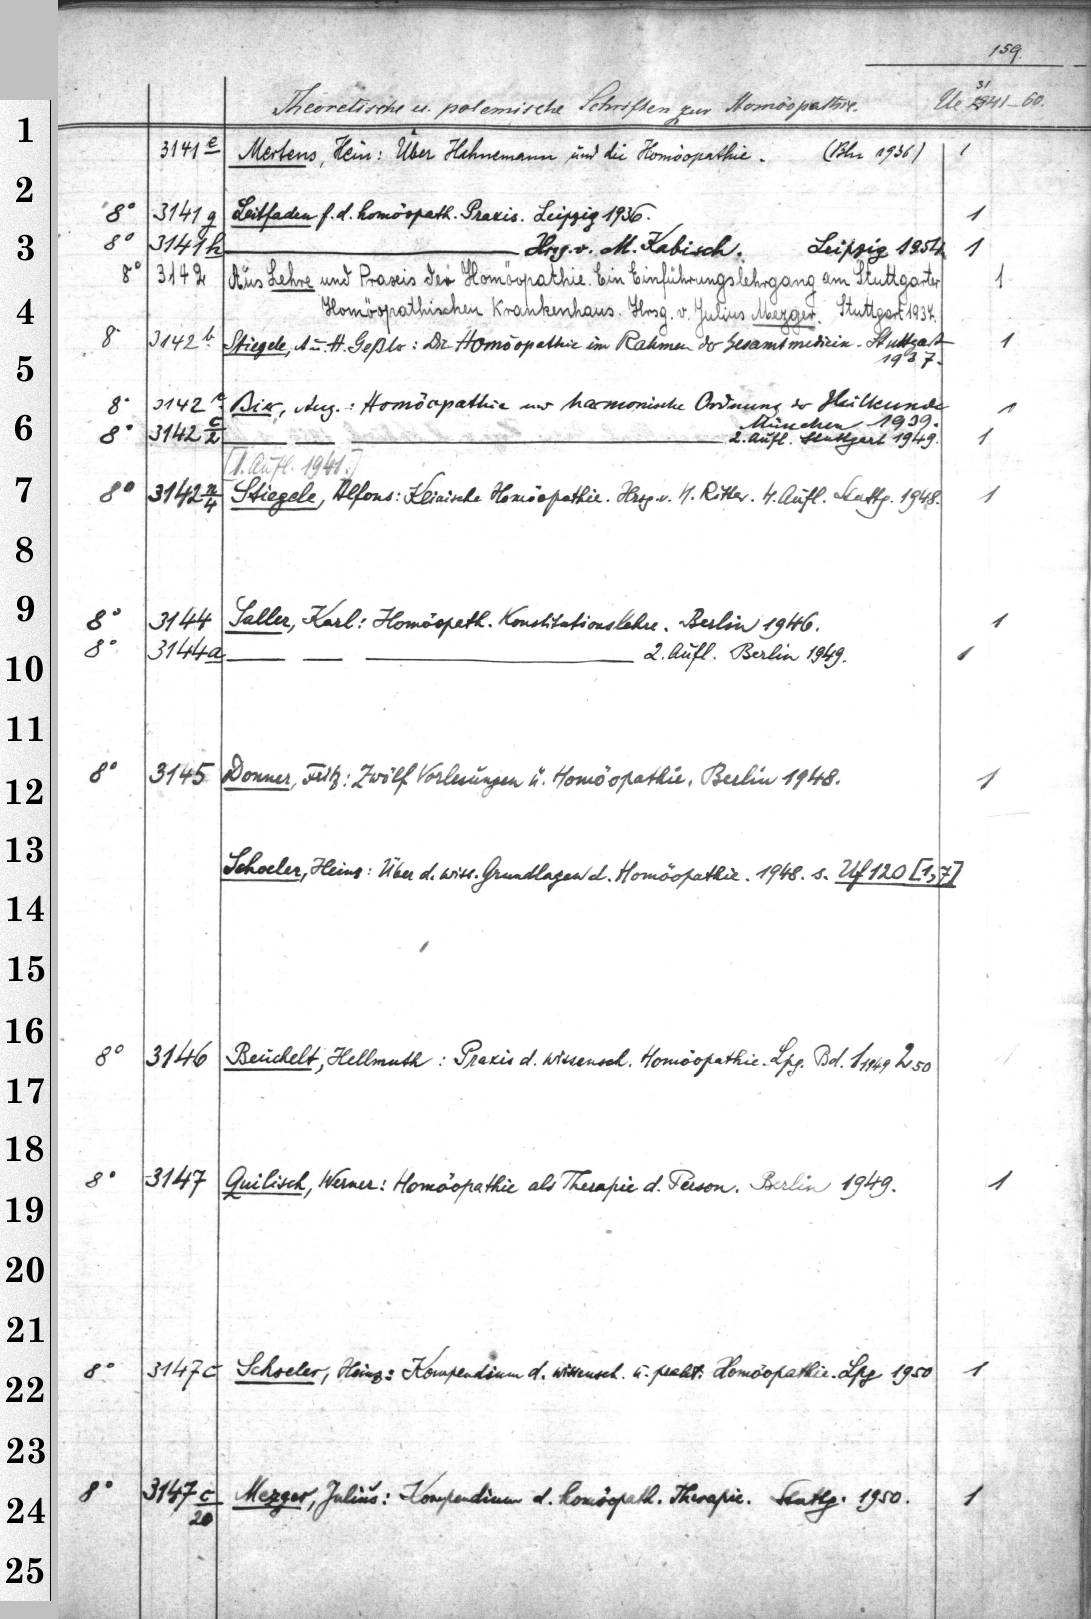 159.
Theoretische u. polemische Schriften zur Homöopathie. Ue 3141-60.
1
3141 e Mertens, Hein: Über Hahnemann und die Homöopathie. (Bln 1936) 1
2
8° 3141 g Leitfaden f. d. homöopath. Praxis. Leipzig 1936. 1
3
8° 3141 h ——— Hrsg. v. M. Kabisch. Leipzig 1954. 1
8° 3142 Aus Lehre und Praxis der Homöopathie. Ein Einführungslehrgang am Stuttgarter 1
4
Homöopathischen Krankenhaus. Hrsg. v. Julius Mezger. Stuttgart 1937.
8° 3142 b Stiegele, A. u. H. Geßler: Die Homöopathie im Rahmen der Gesamtmedizin. Stuttgart 1
5
1937.
8° 3142 c Bier, Aug.: Homöopathie und harmonische Ordnung der Heilkunde 1
6
München 1939.
8° 3142 c/2 — — ——— 2. Aufl. Stuttgart 1949. 1
[1. Aufl. 1941.]
7
8° 3142 n/4 Stiegele, Alfons: Klinische Homöopathie. Hrsg. v. H. Ritter. 4. Aufl. Stuttg. 1948. 1
8
9
8° 3144 Saller, Karl: Homöopath. Konstitutionslehre. Berlin 1946. 1
10
8° 3144a — — ——— 2. Aufl. Berlin 1949. 1
11
12
8° 3145 Donner, Fritz: Zwölf Vorlesungen ü. Homöopathie. Berlin 1948. 1
13
Schoeler, Heinz: Über d. wiss. Grundlagen d. Homöopathie. 1948. s. Uf 120 [1,7]
14
15
16
8° 3146 Beuchelt, Hellmuth: Praxis d. wissensch. Homöopathie. Lpg. Bd. 1 1949 2 50 1
17
18
8° 3147 Quilisch, Werner: Homöopathie als Therapie d. Person. Berlin 1949. 1
19
20
21
22
8° 3147 c Schoeler, Heinz: Kompendium d. wissensch. u. prakt. Homöopathie. Lpg 1950 1
23
24
8° 3147 c/20 Mezger, Julius: Kompendium d. homöopath. Therapie. Stuttg. 1950. 1
25